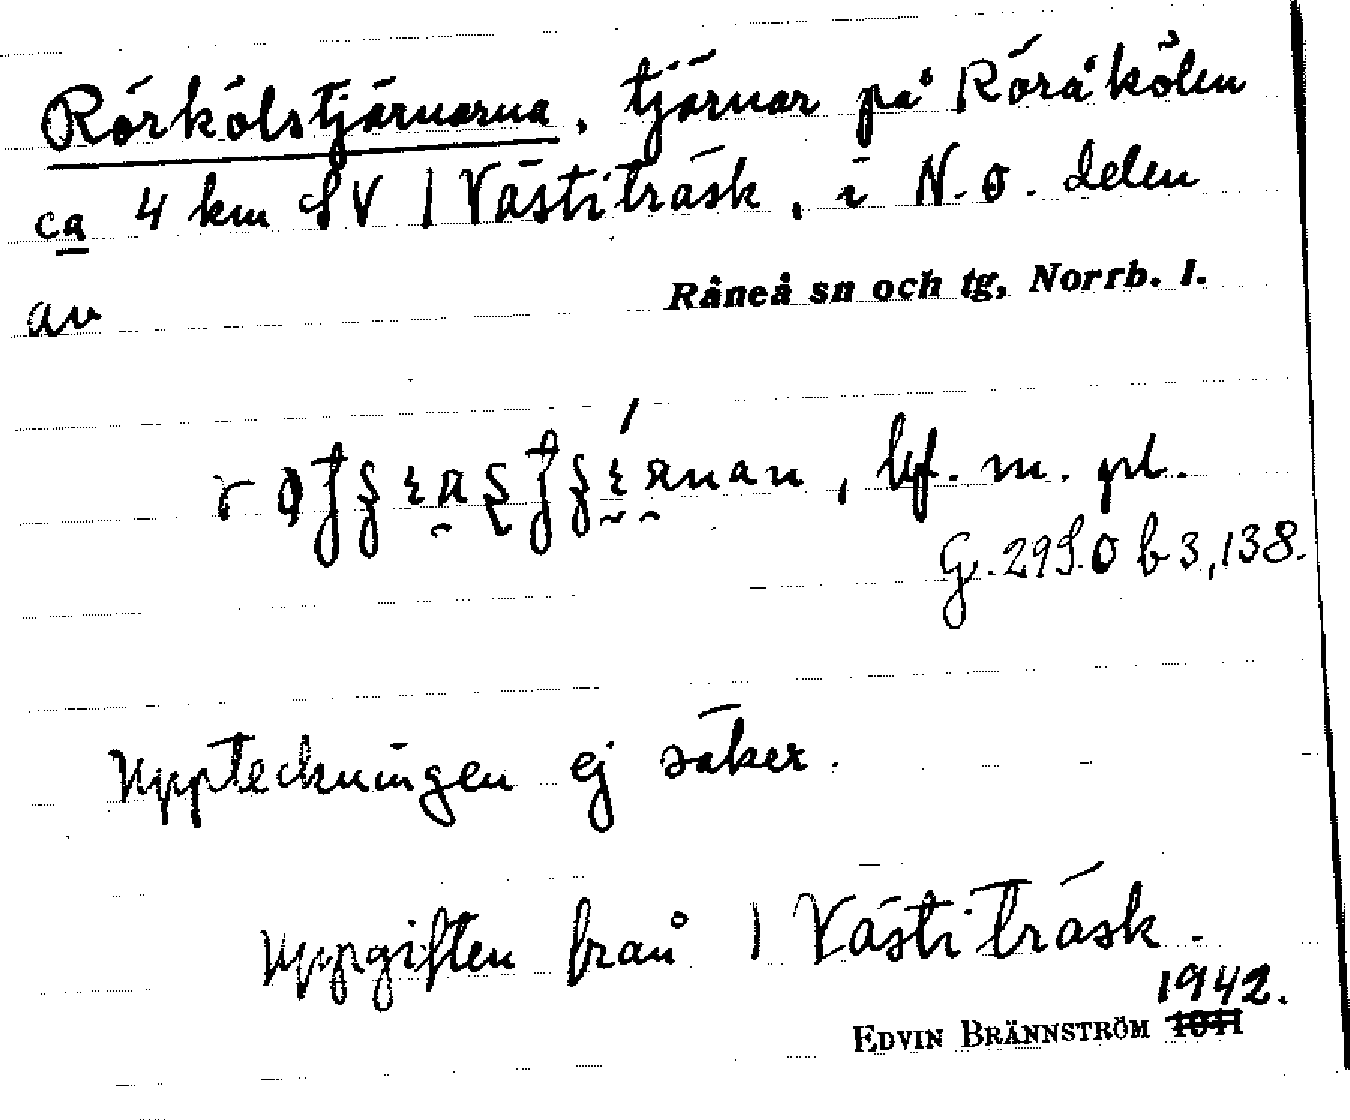 Rörkölstjärnarna, tjärnar på |Röråkölen
ca 4 km SV |Västiträsk, i N.O. delen
av Råneå sn och tg, Norrb. l.
, bf. m. pl.
G. 29 S. O b 3, 138.
Uppteckningen ej säker.
Uppgiften från |Västiträsk.
1942.
EDVIN BRÄNNSTRÖM 1941